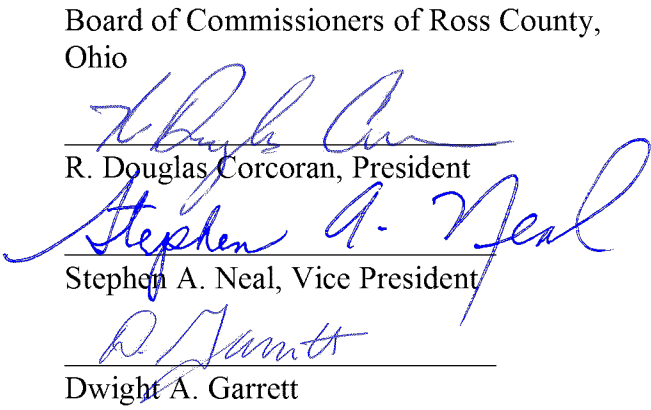 Board of Commissioners of Ross County,
Ohio
R. Douglas Corcoran, President
Stephen A. Neal
Stephen A. Neal, Vice President
D. Garrett
Dwight A. Garrett